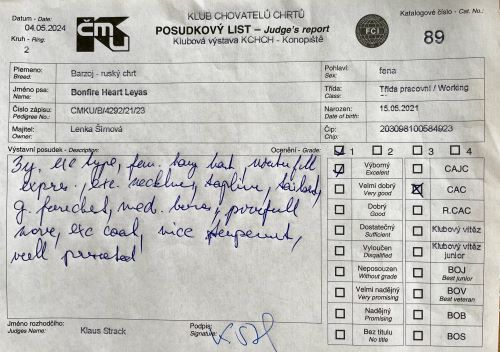 Datum - Date:
04.05.2024
Kruh - Ring:
2
ČMKU
KLUB CHOVATELŮ CHRTŮ
POSUDKOVÝ LIST – Judge's report
Klubová výstava KCHCH - Konopiště
FCI
Katalogové číslo - Cat. No.:
89
Plemeno:
Breed:
Barzoj - ruský chrt
Pohlaví:
Sex:
fena
Jméno psa:
Name:
Bonfire Heart Leyas
Třída:
Class:
Třída pracovní / Working
Číslo zápisu:
Pedigree No.:
CMKU/B/4292/21/23
Narozen:
Date of birth:
15.05.2021
Majitel:
Owner:
Lenka Širnová
Čip:
Chip:
203098100584923
Výstavní posudek - Description:
Ocenění - Grade:
1 2 3 4
3y, exc type, fem.
expres, exc neckline, topline,
g. med. bones, powerfull
move, exc coat, nice temperment,
well presented
Výborný
Excellent
CAJC
Velmi dobrý
Very good
CAC
Dobrý
Good
R.CAC
Dostatečný
Sufficient
Klubový vítěz
Vyloučen
Disqalified
Klubový vítěz
junior
Neposouzen
Without grade
BOJ
Best junior
Velmi nadějný
Very promising
BOV
Best veteran
Nadějný
Promising
BOB
Bez titulu
No title
BOS
Jméno rozhodčího:
Judges Name:
Klaus Strack
Podpis:
Signature: